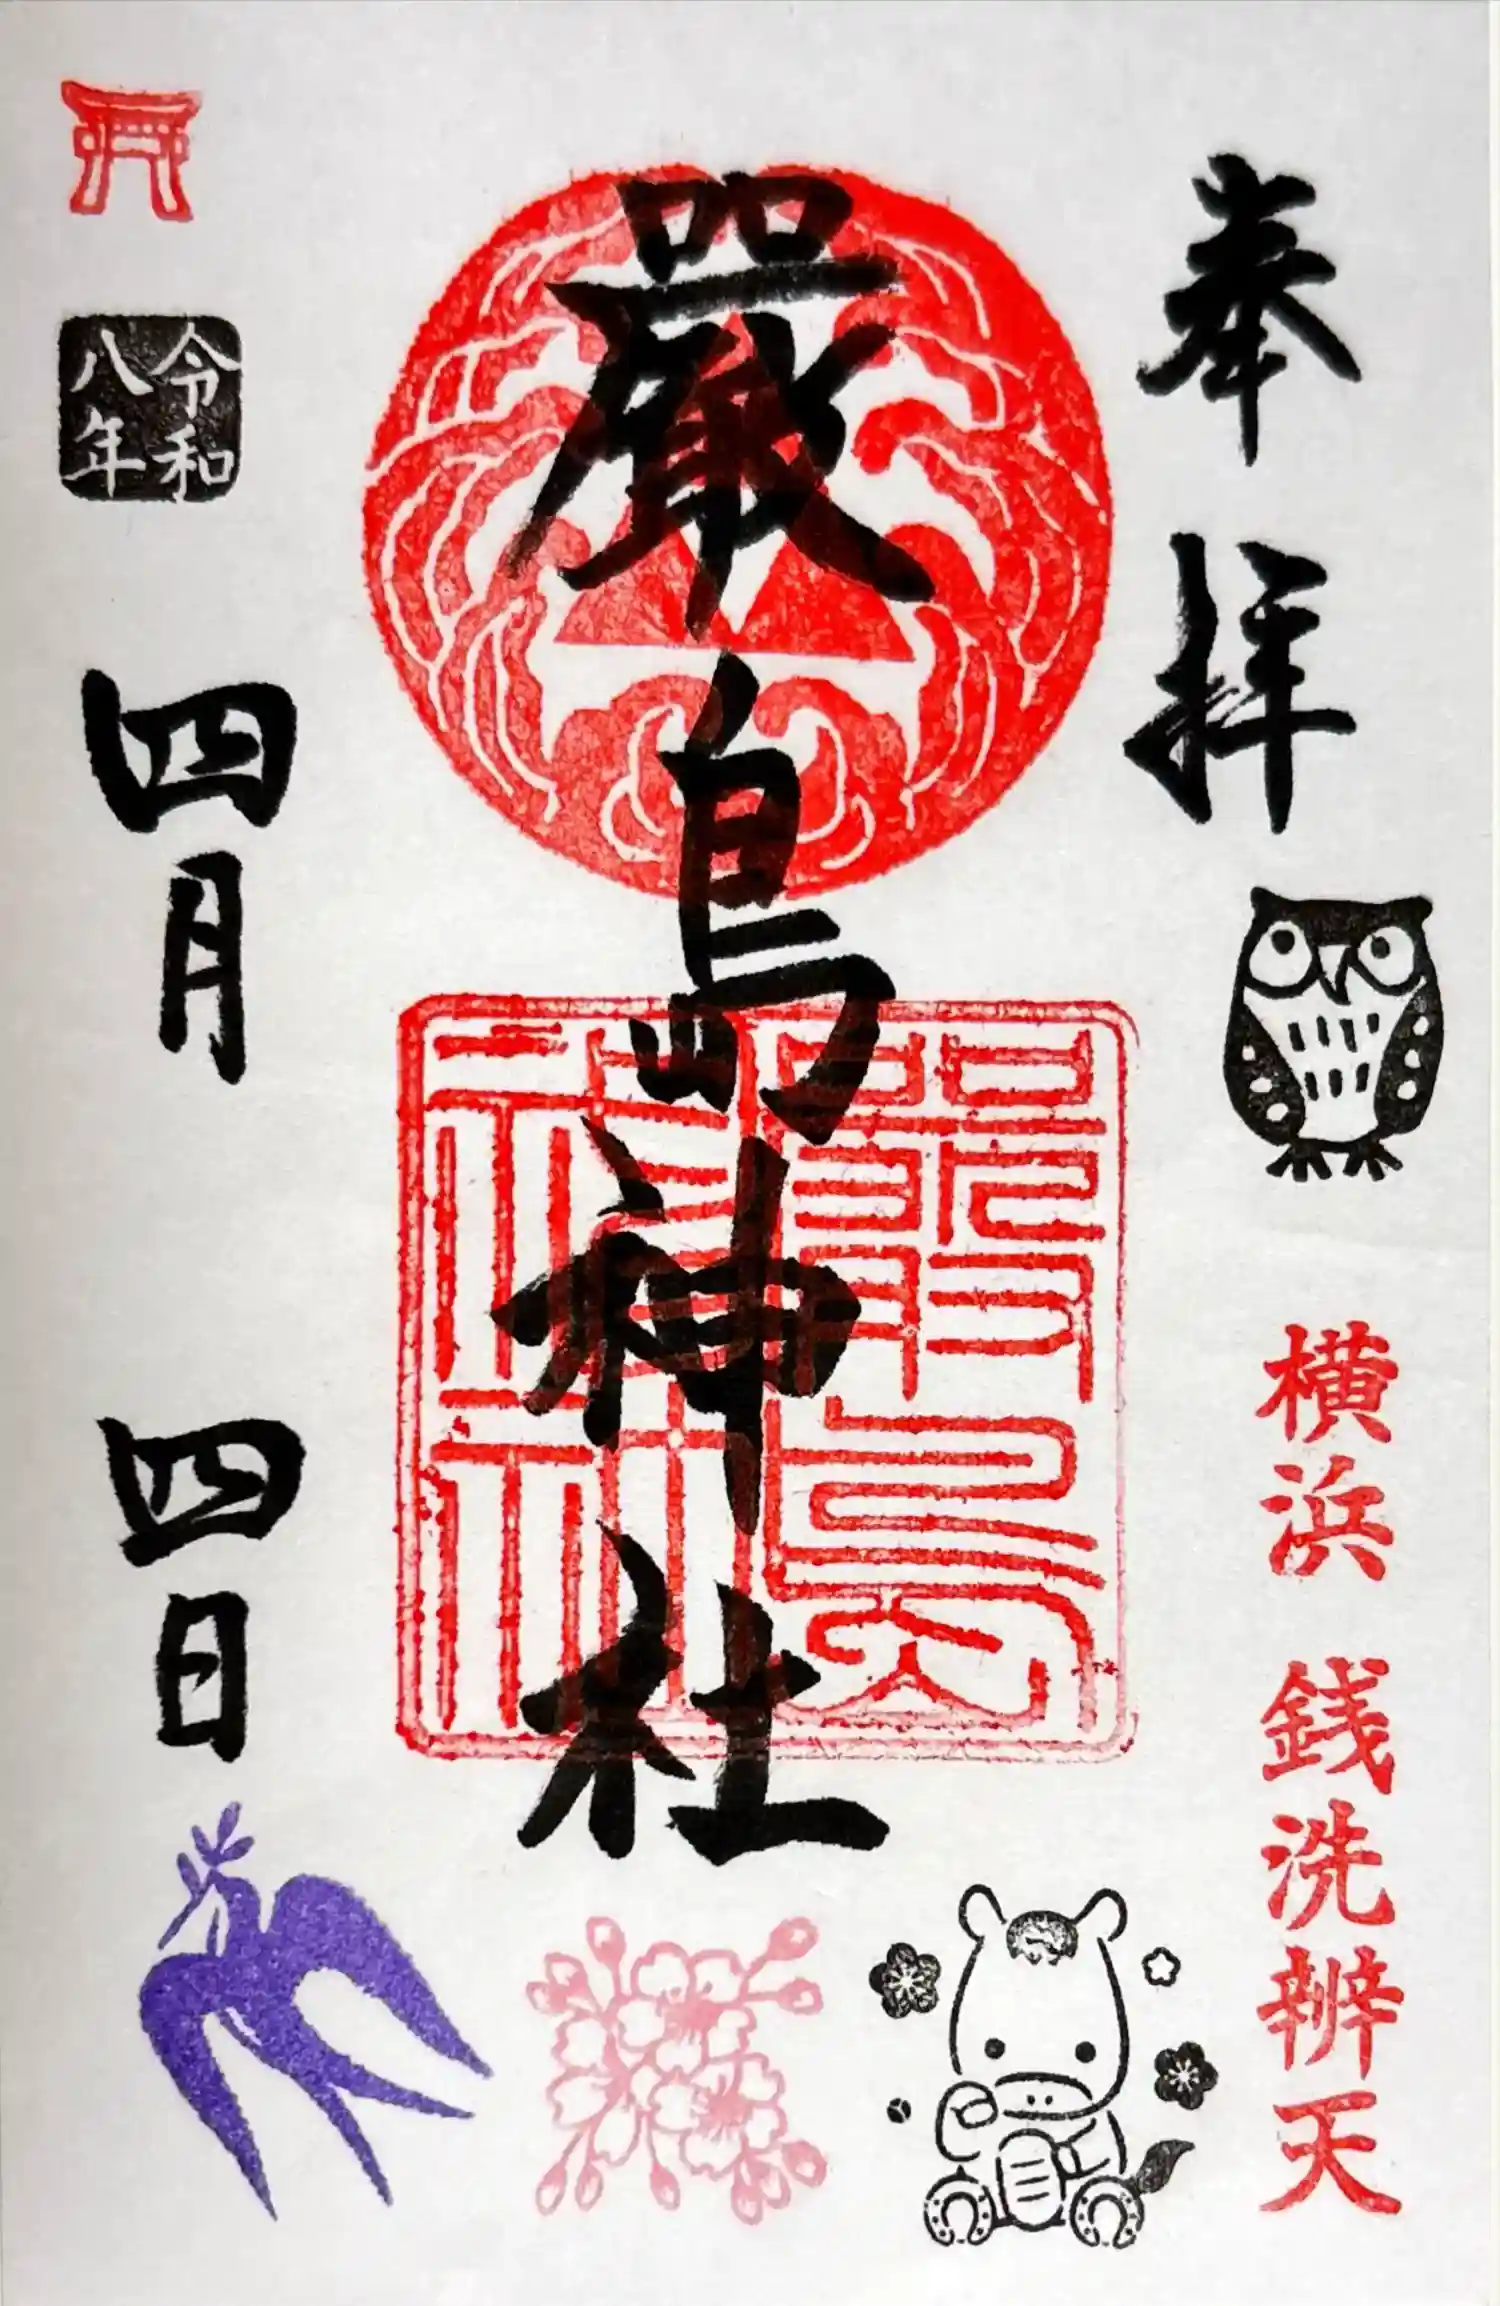 奉拝
横浜 銭洗辨天
嚴島神社
嚴島
神社
令和
八年
四月 四日